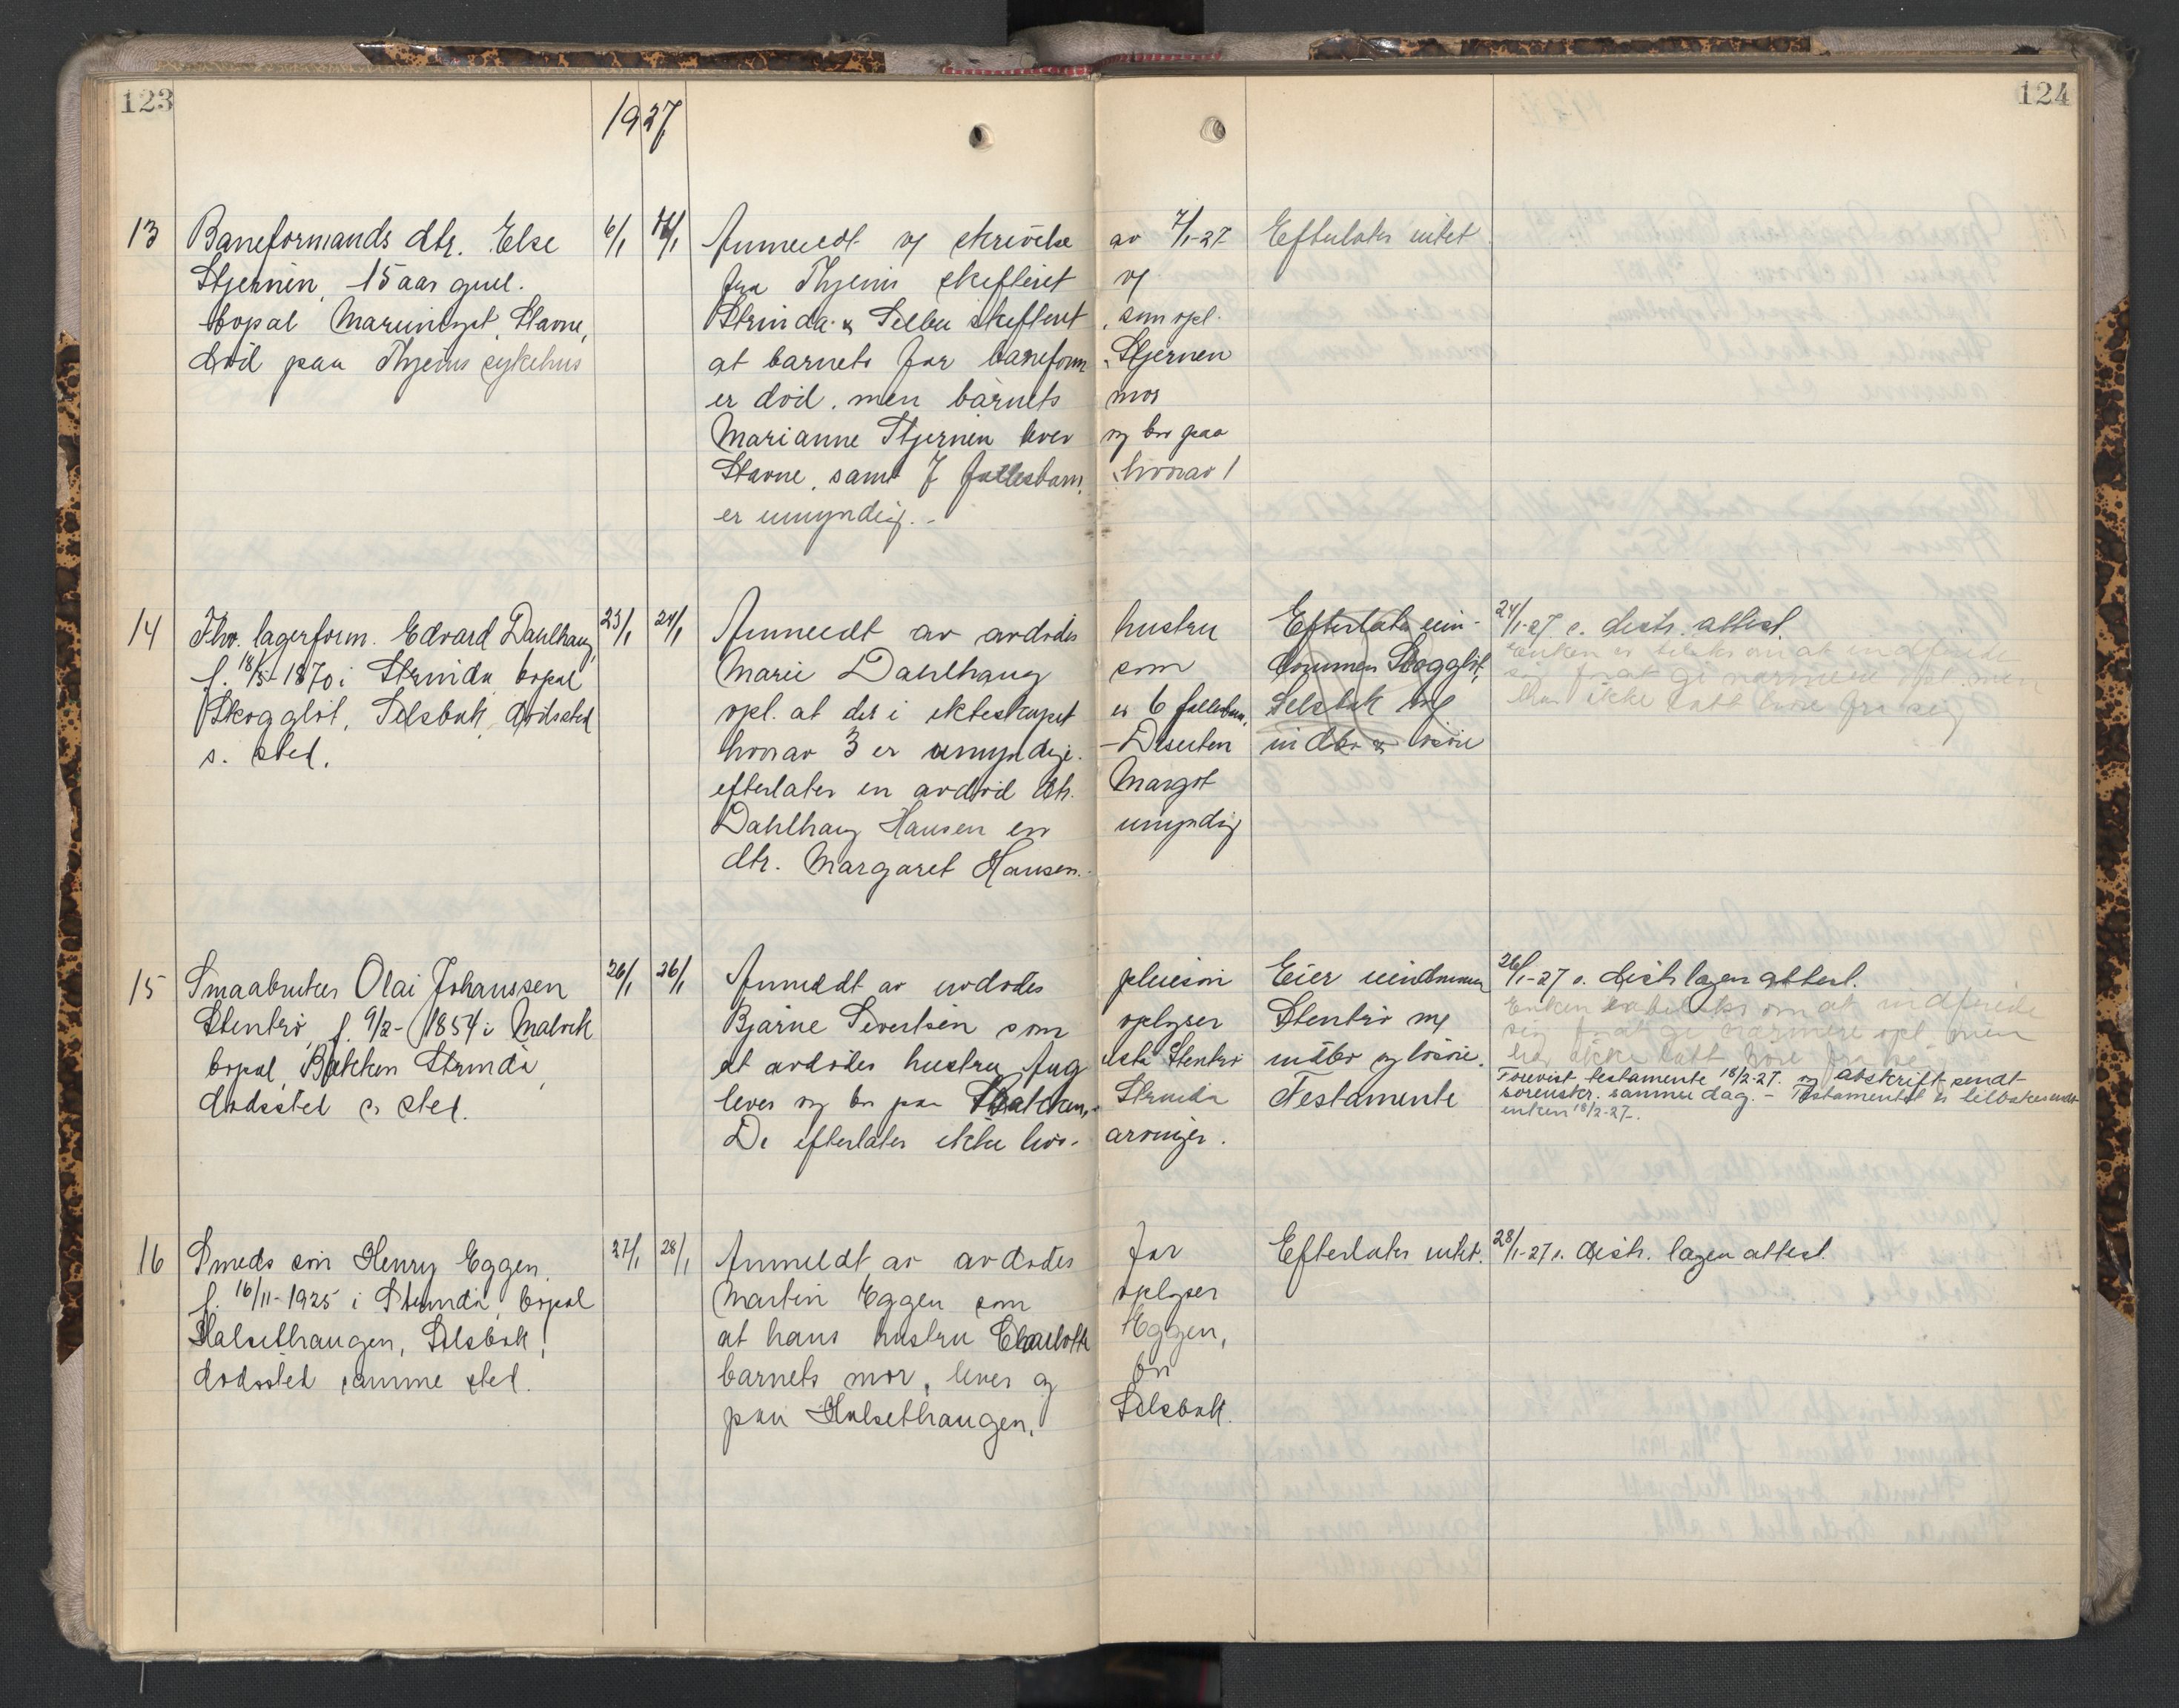 123
124
1927
13 Baneformands dtr. Else 6/1 12/1 Anmeldt og skrivelse av 7/1-27 Efterlater intet
Stjernen, 15 aar gml. fra Thjems skifteret og
bopæl Marieniyst, Stavne, Strinda & Selbu skifteret, som opl.
död paa Thjems sykehus at barnets far baneform. Stjernen
er död, men barnets mor
Marianne Stjernen lever og bor paa
Stavne, samt 7 fællesbarn, hvorav 1
er umyndig. -
14 Fhv. lagerform. Edvard Dahlhaug 23/1 24/1 Anmeldt av avdödes hustru Efterlater eien- 24/1-27 e. distr. attest.
f. 18/5-1870 i Strinda bopæl Marie Dahlhaug som dommen Skogglöt, Enken er tilsks om at indfinde
Skogglöt, Selsbak, dödssted opl. at der i ekteskapet er 6 fællesbarn, Selsbak og sig for at gi nærmere opl. men
s. sted. hvorav 3 er umyndige. - Desuten indbo & lösöre har ikke latt höre fra sig
efterlater en avdöd dtr. Margot
Dahlhaug Hansen en umyndig
dtr. Margaret Hansen.
15 Smaabruker Olai Johanssen 26/1 26/1 Anmeldt av avdödes pleiesön Eier eiendommen 26/1-27 e. distr.lægen attest.
Stentrö, f. 9/2-1854 i Malvik Bjarne Sivertsen som oplyser Stentrö m/ Enken er tilsks om at indfinde
bopæl, Bakken Strinda, at avdödes hustru Aug usta Stentrö indbo og lösöre. sig for at gi nærmere opl. men
dödssted s. sted. lever og bor paa Bakken, Strinda Testamente har ikke latt höre fra sig
De efterlater ikke livs- arvinger. Forevist testamente 18/2-27. og avskrift sendt
sorenskr. samme dag. - Testamentet er tilbakesendt
enken 18/2-27.
16 Smeds sön Henry Eggen, 27/1 28/1 Anmeldt av avdödes far Efterlater intet. 28/1-27 e. distr. lægen attest.
f. 16/11-1925 i Strinda, bopæl Martin Eggen som oplyser
Halsethaugen, Selsbak, at hans hustru Charlotte Eggen,
dödssted samme sted. barnets mor, lever og bor
paa Halsethaugen, Selsbak.